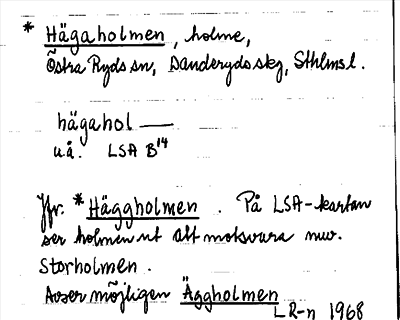 * Hägaholmen, holme,
Östra Ryds sn, Danderyds skg, Sthlms l.
hägahol —
u.å. LSA B¹⁴
Jfr. * Häggholmen. På LSA-kartan
ser holmen ut att motsvara nuv.
Storholmen.
Avser möjligen Äggholmen
LR-n 1968